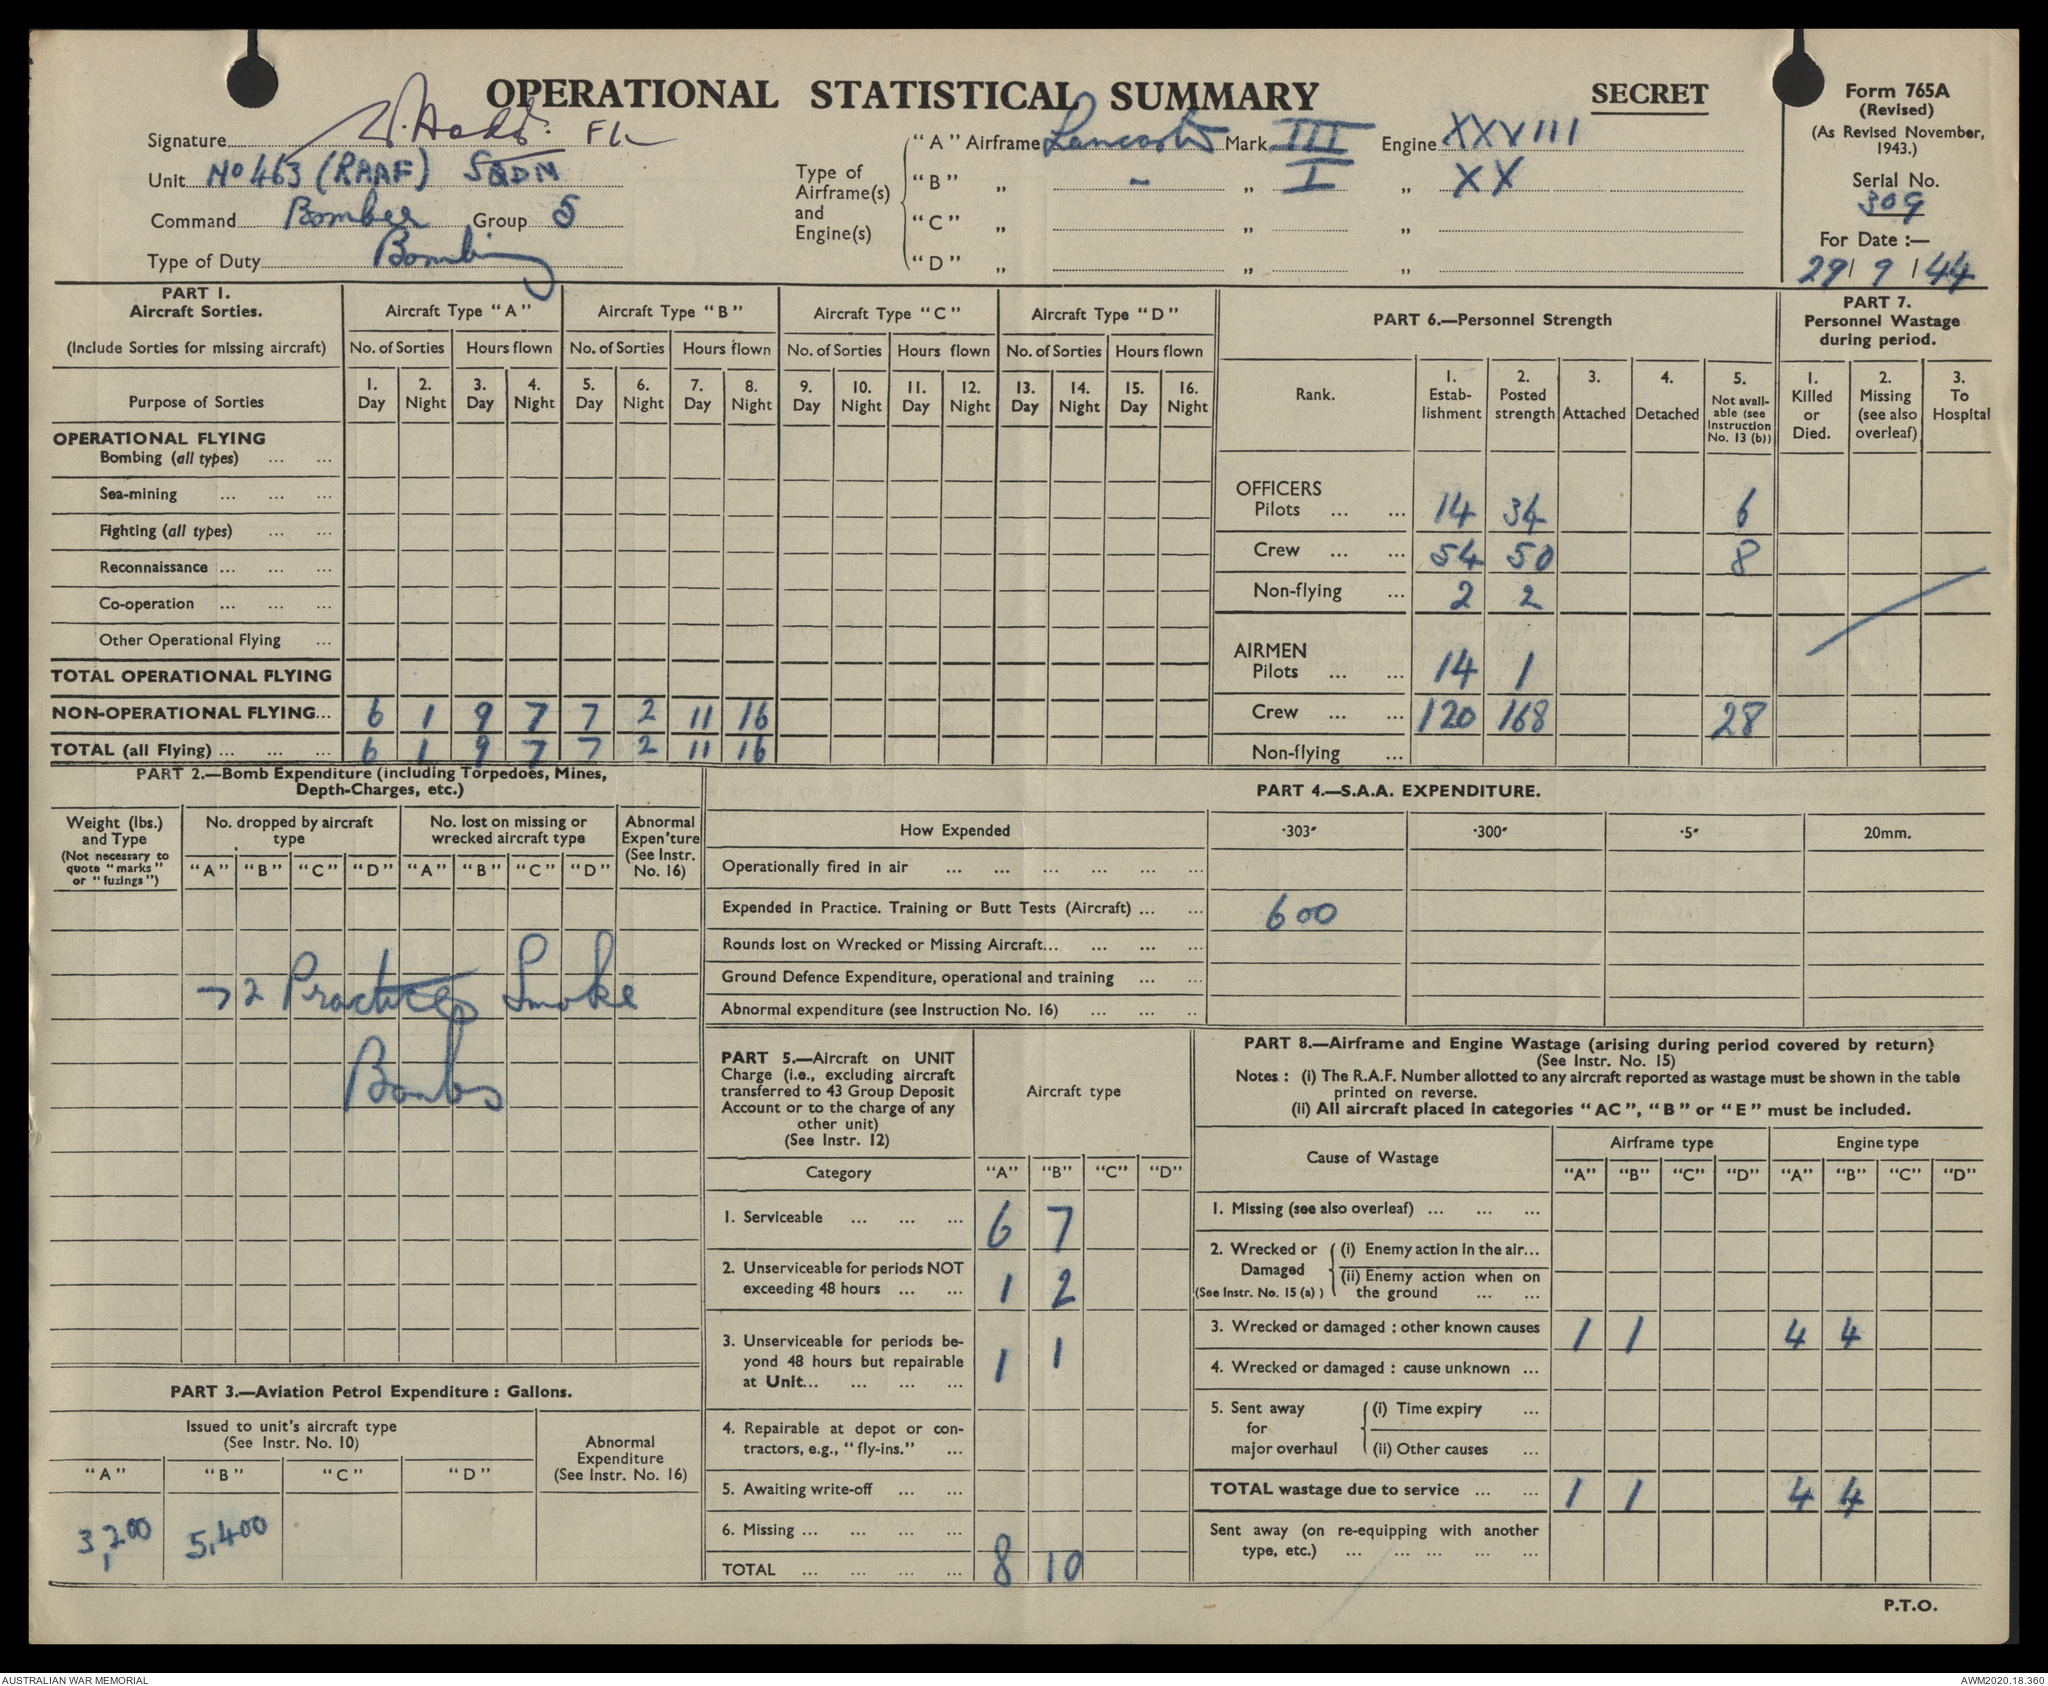 OPERATIONAL STATISTICAL SUMMARY
SECRET
Form 765A
(Revised)
(As Revised November,
1943.)
Serial No.
309
For Date :—
29/ 9 /44
Signature F/L
Unit No 463 (RAAF) SQDN
Command Bomber Group 5
Type of Duty Bombing
Type of
Airframe(s)
and
Engine(s)
"A" Airframe Lancaster Mark III Engine XXVIII
"B" „ - „ I „ XX
"C" „ „ „
"D" „ „ „
PART 1.
Aircraft Sorties.
(Include Sorties for missing aircraft)
Purpose of Sorties
Aircraft Type "A" Aircraft Type "B" Aircraft Type "C" Aircraft Type "D"
No. of Sorties Hours flown No. of Sorties Hours flown No. of Sorties Hours flown No. of Sorties Hours flown
1. 2. 3. 4. 5. 6. 7. 8. 9. 10. 11. 12. 13. 14. 15. 16.
Day Night Day Night Day Night Day Night Day Night Day Night Day Night Day Night
OPERATIONAL FLYING
Bombing (all types) ... ...
Sea-mining ... ... ...
Fighting (all types) ... ...
Reconnaissance ... ... ...
Co-operation ... ... ...
Other Operational Flying ...
TOTAL OPERATIONAL FLYING
NON-OPERATIONAL FLYING... 6 1 9 7 7 2 11 16
TOTAL (all Flying) ... ... ... 6 1 9 7 7 2 11 16
PART 6.—Personnel Strength
Rank.
1. Estab-lishment
2. Posted strength
3. Attached
4. Detached
5. Not avail-able (see Instruction No. 13 (b))
OFFICERS
Pilots ... ... 14 34 6
Crew ... ... 54 50 8
Non-flying ... 2 2
AIRMEN
Pilots ... ... 14 1
Crew ... ... 120 168 28
Non-flying ...
PART 7.
Personnel Wastage
during period.
1. Killed or Died.
2. Missing (see also overleaf)
3. To Hospital
PART 2.—Bomb Expenditure (including Torpedoes, Mines,
Depth-Charges, etc.)
Weight (lbs.)
and Type
(Not necessary to
quote "marks"
or "fuzings")
No. dropped by aircraft
type
No. lost on missing or
wrecked aircraft type
Abnormal
Expen'ture
(See Instr.
No. 16)
"A" "B" "C" "D" "A" "B" "C" "D"
72 Practices Smoke
Bombs
PART 3.—Aviation Petrol Expenditure : Gallons.
Issued to unit's aircraft type
(See Instr. No. 10)
Abnormal
Expenditure
(See Instr. No. 16)
"A" "B" "C" "D"
3,200 5,400
PART 4.—S.A.A. EXPENDITURE.
How Expended ·303″ ·300″ ·5″ 20mm.
Operationally fired in air ... ... ... ... ... ...
Expended in Practice. Training or Butt Tests (Aircraft) ... ... 600
Rounds lost on Wrecked or Missing Aircraft... ... ... ...
Ground Defence Expenditure, operational and training ... ...
Abnormal expenditure (see Instruction No. 16) ... ... ..
PART 5.—Aircraft on UNIT
Charge (i.e., excluding aircraft
transferred to 43 Group Deposit
Account or to the charge of any
other unit)
(See Instr. 12)
Aircraft type
Category "A" "B" "C" "D"
1. Serviceable ... ... ... 6 7
2. Unserviceable for periods NOT
exceeding 48 hours ... ... 1 2
3. Unserviceable for periods be-
yond 48 hours but repairable
at Unit... ... ... ... 1 1
4. Repairable at depot or con-
tractors, e.g., "fly-ins." ...
5. Awaiting write-off ... ...
6. Missing ... ... ... ...
TOTAL ... ... ... ... 8 10
PART 8.—Airframe and Engine Wastage (arising during period covered by return)
(See Instr. No. 15)
Notes : (i) The R.A.F. Number allotted to any aircraft reported as wastage must be shown in the table
printed on reverse.
(ii) All aircraft placed in categories "AC", "B" or "E" must be included.
Cause of Wastage
Airframe type Engine type
"A" "B" "C" "D" "A" "B" "C" "D"
1. Missing (see also overleaf) ... ... ...
2. Wrecked or Damaged (See Instr. No. 15 (a))
(i) Enemy action in the air...
(ii) Enemy action when on
the ground ... ...
3. Wrecked or damaged : other known causes 1 1 4 4
4. Wrecked or damaged : cause unknown ...
5. Sent away for major overhaul
(i) Time expiry ...
(ii) Other causes ...
TOTAL wastage due to service ... ... 1 1 4 4
Sent away (on re-equipping with another
type, etc.) ... ... ... ... ...
P.T.O.
AUSTRALIAN WAR MEMORIAL
AWM2020.18.360